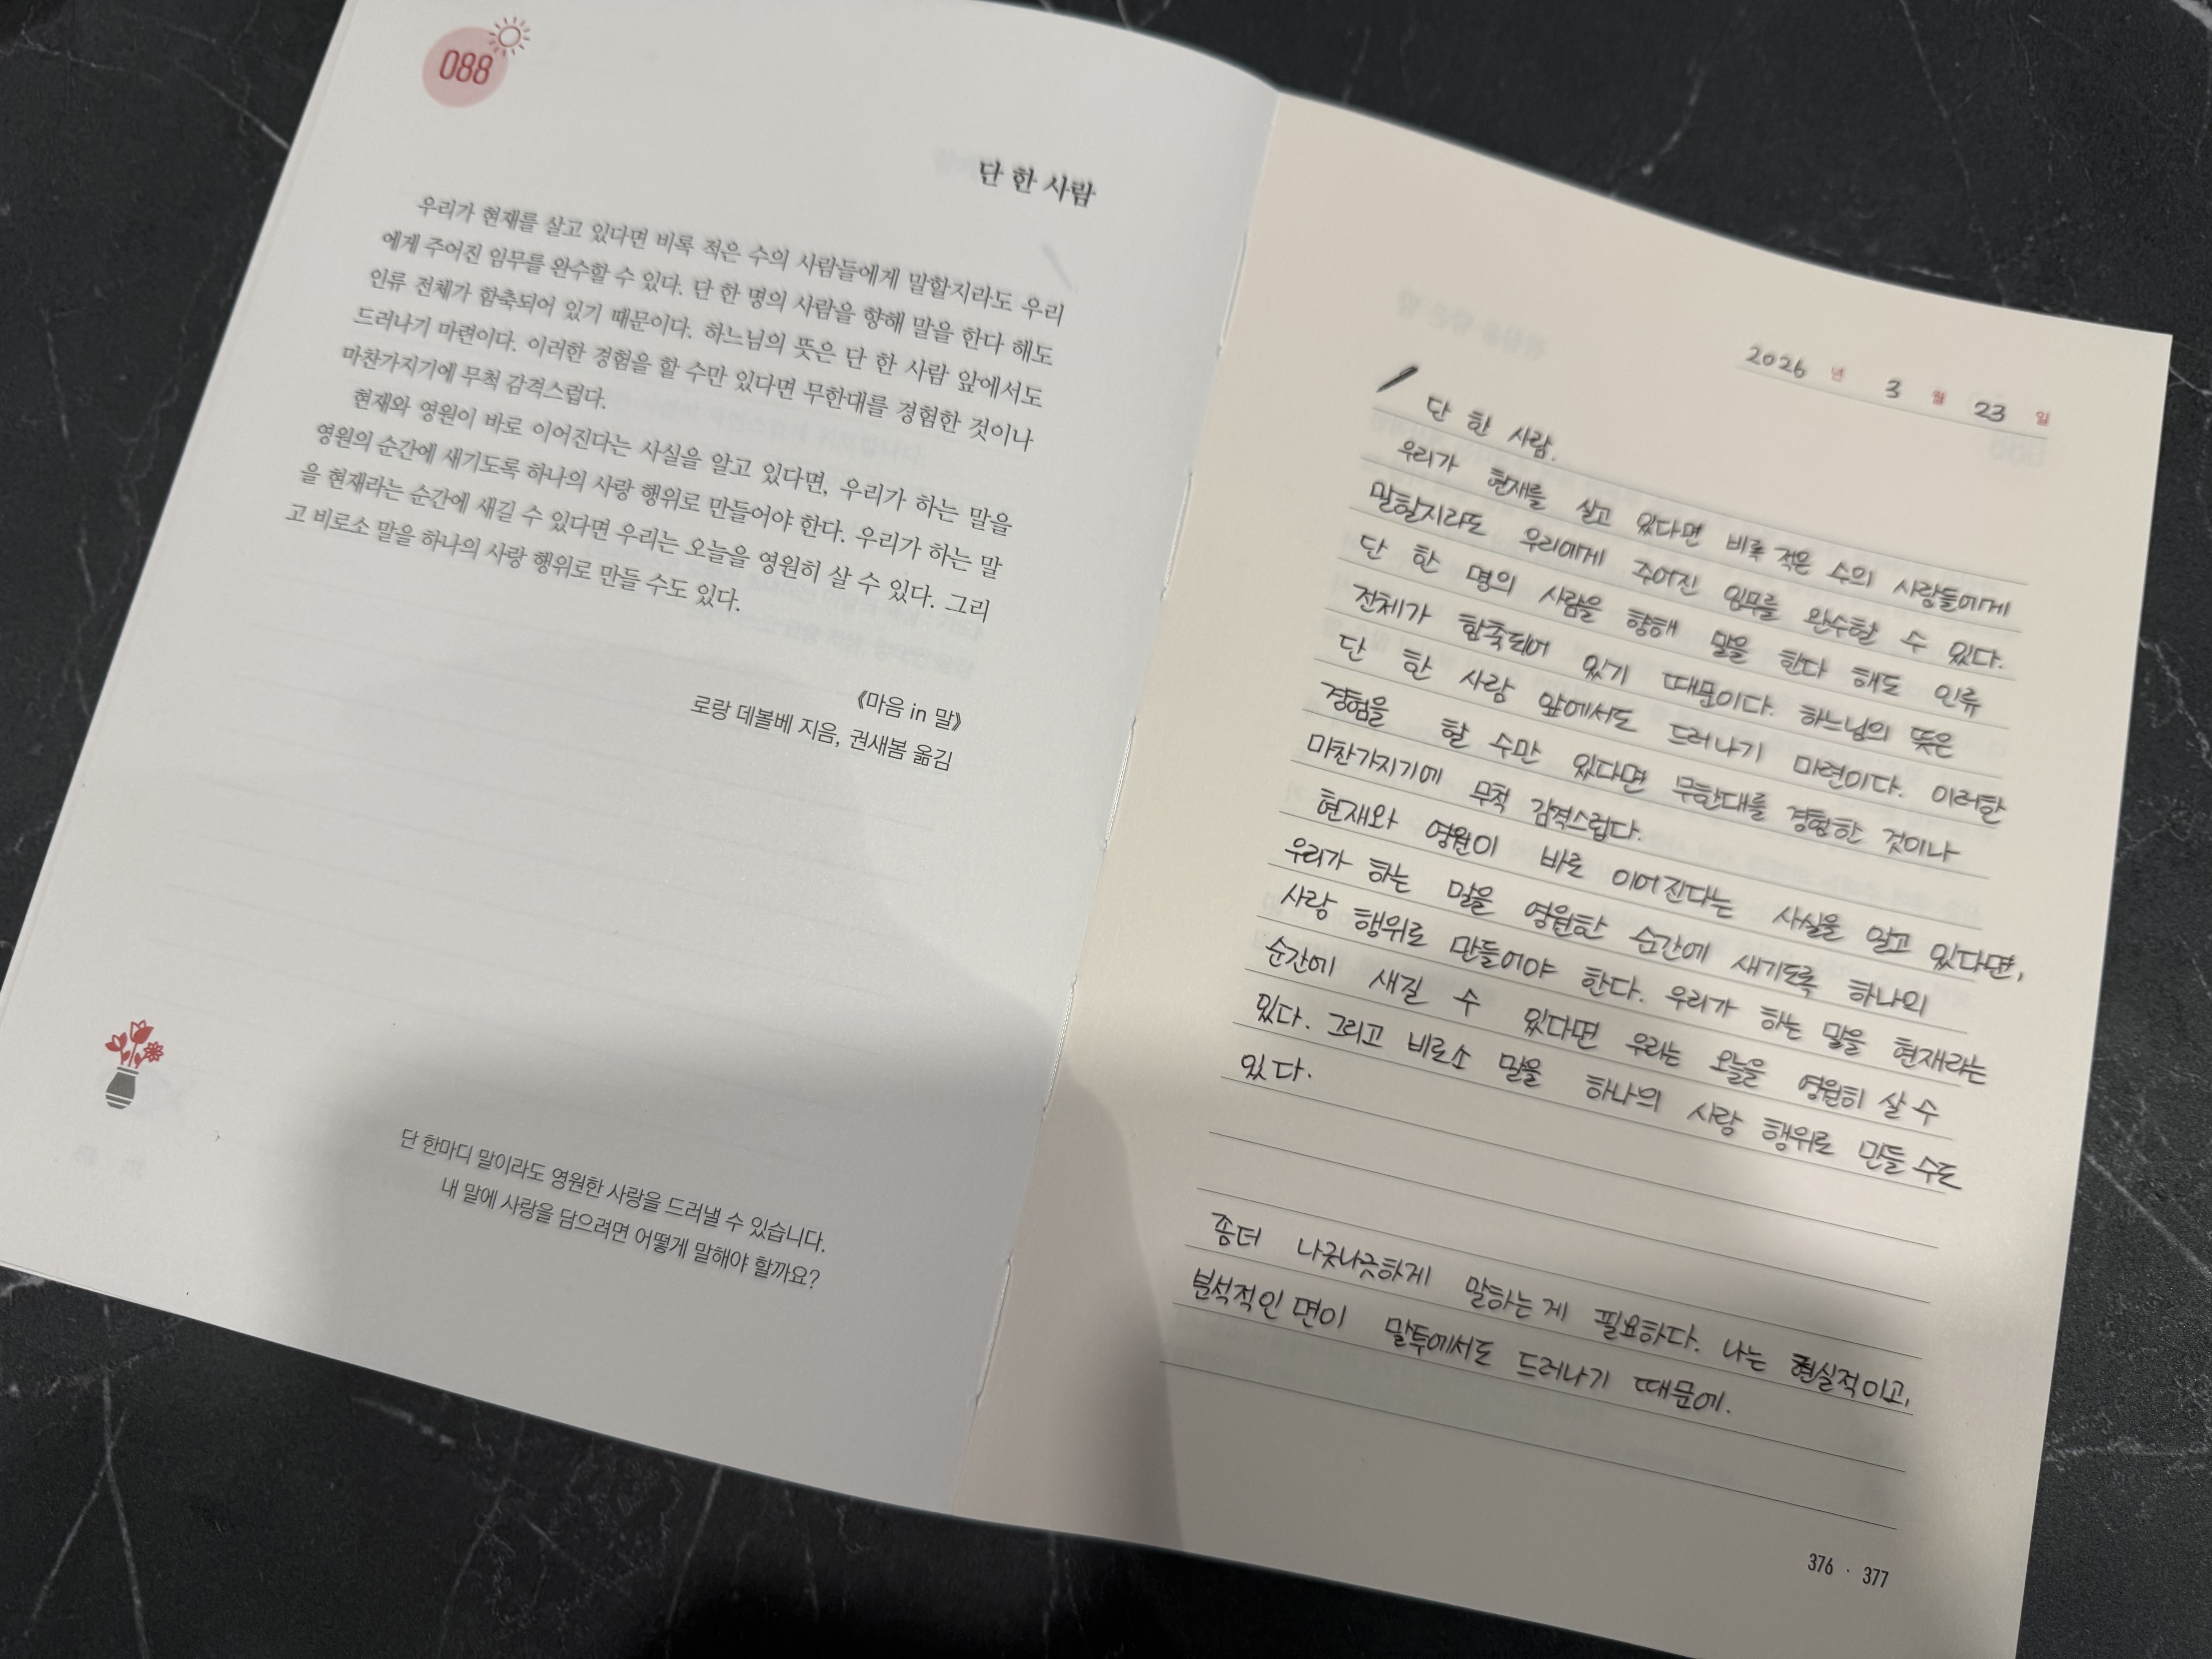 088
단 한 사람
우리가 현재를 살고 있다면 비록 적은 수의 사람들에게 말할지라도 우리
에게 주어진 임무를 완수할 수 있다. 단 한 명의 사람을 향해 말을 한다 해도
인류 전체가 함축되어 있기 때문이다. 하느님의 뜻은 단 한 사람 앞에서도
드러나기 마련이다. 이러한 경험을 할 수만 있다면 무한대를 경험한 것이나
마찬가지기에 무척 감격스럽다.
현재와 영원이 바로 이어진다는 사실을 알고 있다면, 우리가 하는 말을
영원의 순간에 새기도록 하나의 사랑 행위로 만들어야 한다. 우리가 하는 말
을 현재라는 순간에 새길 수 있다면 우리는 오늘을 영원히 살 수 있다. 그리
고 비로소 말을 하나의 사랑 행위로 만들 수도 있다.
《마음 in 말》
로랑 데볼베 지음, 권새봄 옮김
단 한마디 말이라도 영원한 사랑을 드러낼 수 있습니다.
내 말에 사랑을 담으려면 어떻게 말해야 할까요?
2026 년 3 월 23 일
단 한 사람.
우리가 현재를 살고 있다면 비록 적은 수의 사람들에게
말할지라도 우리에게 주어진 임무를 완수할 수 있다.
단 한 명의 사람을 향해 말을 한다 해도 인류
전체가 함축되어 있기 때문이다. 하느님의 뜻은
단 한 사람 앞에서도 드러나기 마련이다. 이러한
경험을 할 수만 있다면 무한대를 경험한 것이나
마찬가지기에 무척 감격스럽다.
현재와 영원이 바로 이어진다는 사실을 알고 있다면,
우리가 하는 말을 영원한 순간에 새기도록 하나의
사랑 행위로 만들어야 한다. 우리가 하는 말을 현재라는
순간에 새길 수 있다면 우리는 오늘을 영원히 살 수
있다. 그리고 비로소 말을 하나의 사랑 행위로 만들 수도
있다.
좀더 나긋나긋하게 말하는게 필요하다. 나는 현실적이고,
분석적인 면이 말투에서도 드러나기 때문에.
376 · 377